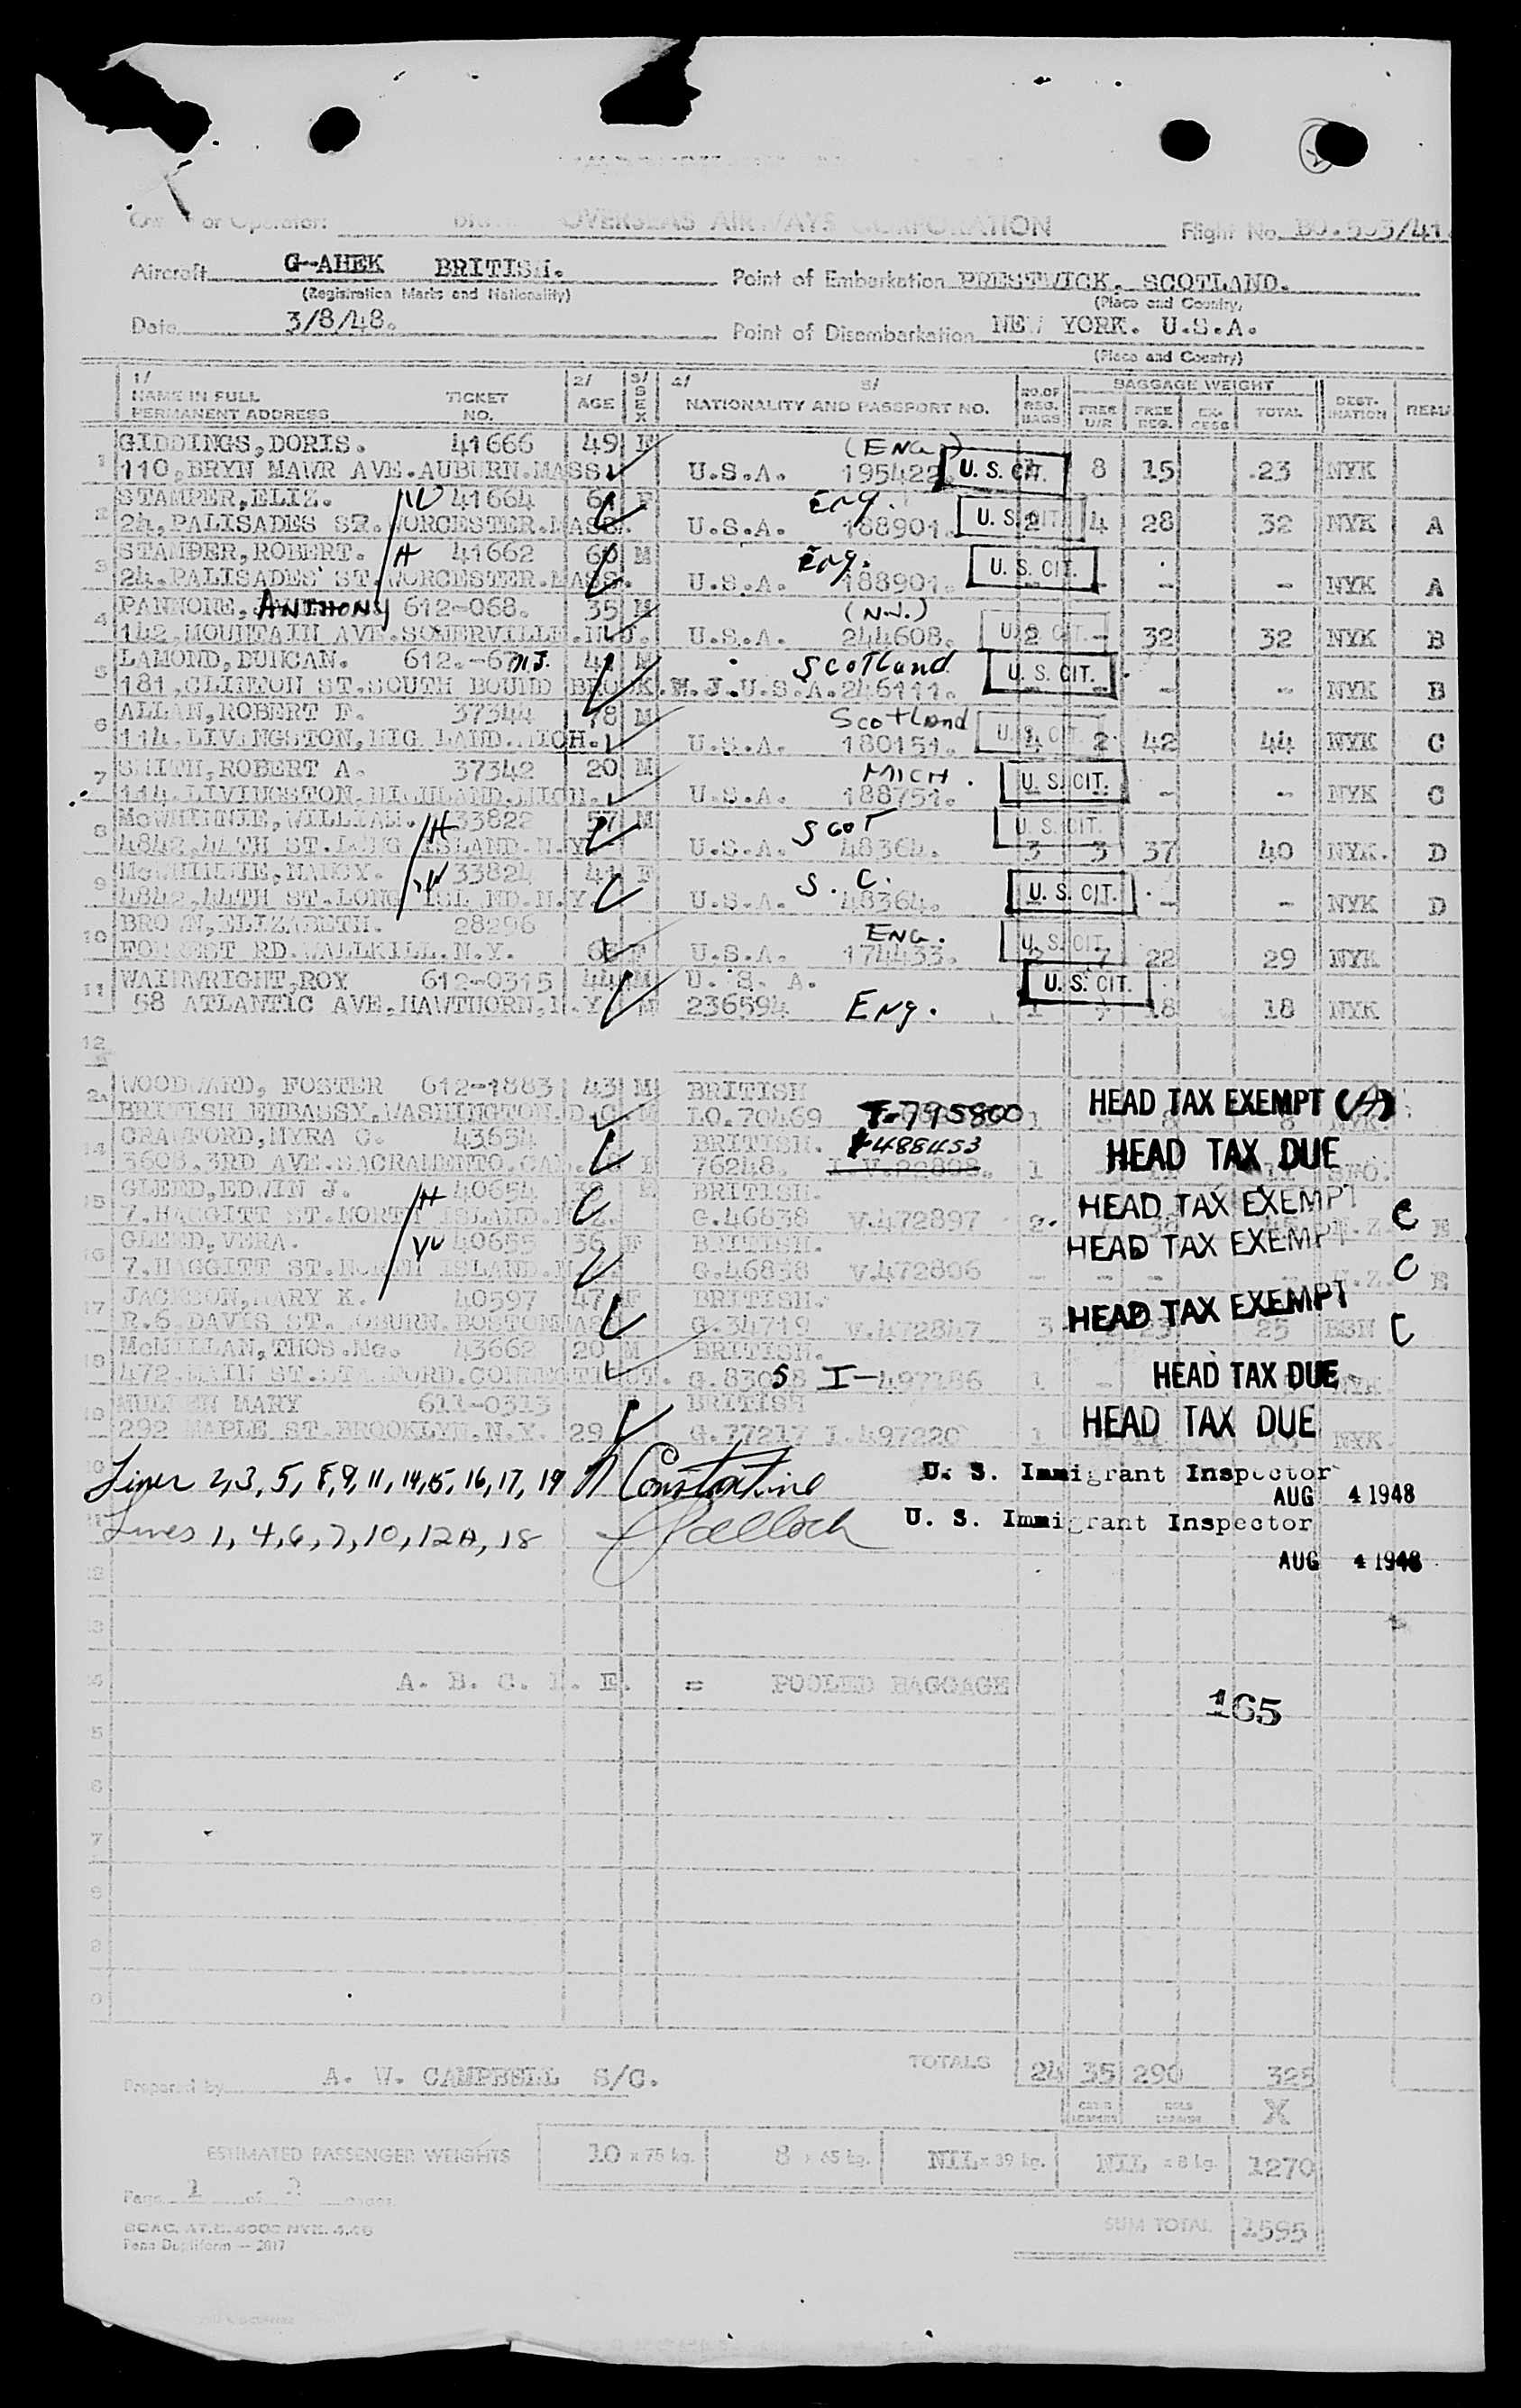 or Operator: OVERSEAS AIRWAYS CORPORATION Flight No. BO.503/41.
Aircraft G-AHEK BRITISH. Point of Embarkation PRESTWICK, SCOTLAND.
(Registration Marks and Nationality) (Place and Country)
Date 3/8/48. Point of Disembarkation NEW YORK. U.S.A.
(Place and Country)
1/ 2/ 3/ 4/ 5/ NO.OF BAGGAGE WEIGHT DEST-
NAME IN FULL TICKET AGE SEX NATIONALITY AND PASSPORT NO. REG. FREE FREE EX- TOTAL INATION REMA
PERMANENT ADDRESS NO. BAGS U/R REG. CESS
1 GIDDINGS,DORIS. 41666 49 F (ENG)
110,BRYN MAWR AVE.AUBURN.MASS. U.S.A. 195422 U. S. CIT. 8 15 23 NYK
2 STAMPER,ELIZ. W 41664 F Eng.
24,PALISADES ST.WORCESTER.MASS. U.S.A. 188901. U. S. CIT. 2 4 28 32 NYK A
3 STAMPER,ROBERT. H 41662 60 M Eng.
24.PALISADES ST.WORCESTER.MASS. U.S.A. 188901. U. S. CIT. - - - NYK A
4 PANNONE, ANTHONY 612-068. 35 M (N.J.)
142.MOUNTAIN AVE.SOMERVILLE.N.J. U.S.A. 244608. U. S. CIT. 2 - 32 32 NYK B
5 LAMOND,DUNCAN. N.J. M Scotland
181,CLINTON ST.SOUTH BOUND BROOK.N.J.U.S.A.246111. U. S. CIT. - - - NYK B
6 ALLAN,ROBERT F. 37344 78 M Scotland
114.LIVINGSTON,HIGHLAND.MICH. U.S.A. 180151. U. S. CIT. 4 2 42 44 NYK C
7 SMITH,ROBERT A. 37342 20 M MICH.
114.LIVINGSTON.HIGHLAND.MICH. U.S.A. 188751. U. S. CIT. - - NYK C
8 McWHINNIE,WILLIAM. H 33822 57 M SCOT
4842,44TH ST.LONG ISLAND.N.Y. U.S.A. 48364. U. S. CIT. 3 3 37 40 NYK. D
9 McWHINNIE,NANCY. W 33824 41 F S. C.
4842,44TH ST.LONG ISLAND.N.Y. U.S.A. 48364. U. S. CIT. - - NYK D
10 BROWN,ELIZABETH. 28296 ENG.
RD.WALLKILL.N.Y. F U.S.A. 174433. U. S. CIT. 2 7 22 29 NYK
11 WAINWRIGHT,ROY 612-0315 44 M U. S. A.
58 ATLANTIC AVE,HAWTHORN,N.Y. M 236594 Eng. U. S. CIT. 1 18 18 NYK
12
2A WOODWARD, FOSTER 612-1883 43 M BRITISH
BRITISH EMBASSY,WASHINGTON.D.C. LO.70469 T-795800 1 HEAD TAX EXEMPT (A)
14 CRAWFORD,MYRA C. 43654 BRITISH. 488453
3608.3RD AVE.SACRAMENTO.CAL. F 76248. 1 HEAD TAX DUE
15 GLEED,EDWIN J. H 40654 BRITISH.
7.HAGGITT ST.NORTH ISLAND.N.Z. G.46838 V.472897 2. HEAD TAX EXEMPT C N.Z. E
16 GLEED,VERA. W 40655 36 F BRITISH.
7.HAGGITT ST.NORTH ISLAND.N.Z. G.46838 V.472806 - HEAD TAX EXEMPT C N.Z. E
17 JACKSON,MARY K. 40597 47 F BRITISH.
R.6 DAVIS ST. WOBURN.BOSTON MASS G.34719 V.472847 3 HEAD TAX EXEMPT 25 BSN C
18 McMILLAN,THOS.Mc. 43662 20 M BRITISH.
472.MAIN ST.STAMFORD.CONNECTICUT. G.83058 I-497186 1 - HEAD TAX DUE NYK
19 MULLEN MARY 611-0313 F BRITISH
292 MAPLE ST.BROOKLYN.N.Y. 29 G.77217 I.497220 1 HEAD TAX DUE NYK
Lines 2,3,5,8,9,11,14,15,16,17,19 Constantine U. S. Immigrant Inspector
AUG 4 1948
Lines 1,4,6,7,10,12A,18 U. S. Immigrant Inspector
AUG 4 1948
A. B. C. D. E. = POOLED BAGGAGE
165
TOTALS 24 35 290 325
Prepared by A. W. CAMPBELL S/C.
X
ESTIMATED PASSENGER WEIGHTS 10 x 75 kg. 8 x 65 kg. NIL x 39 kg. NIL x 8 kg. 1270
Page 1 of 2 pages
SUM TOTAL 1595